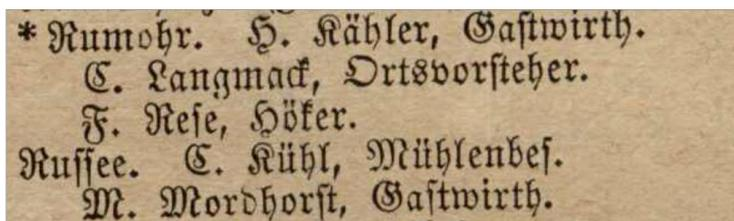 * Rumohr. H. Kähler, Gastwirth.
C. Langmack, Ortsvorsteher.
F. Rese, Höker.
Russee. C. Kühl, Mühlenbes.
M. Mordhorst, Gastwirth.